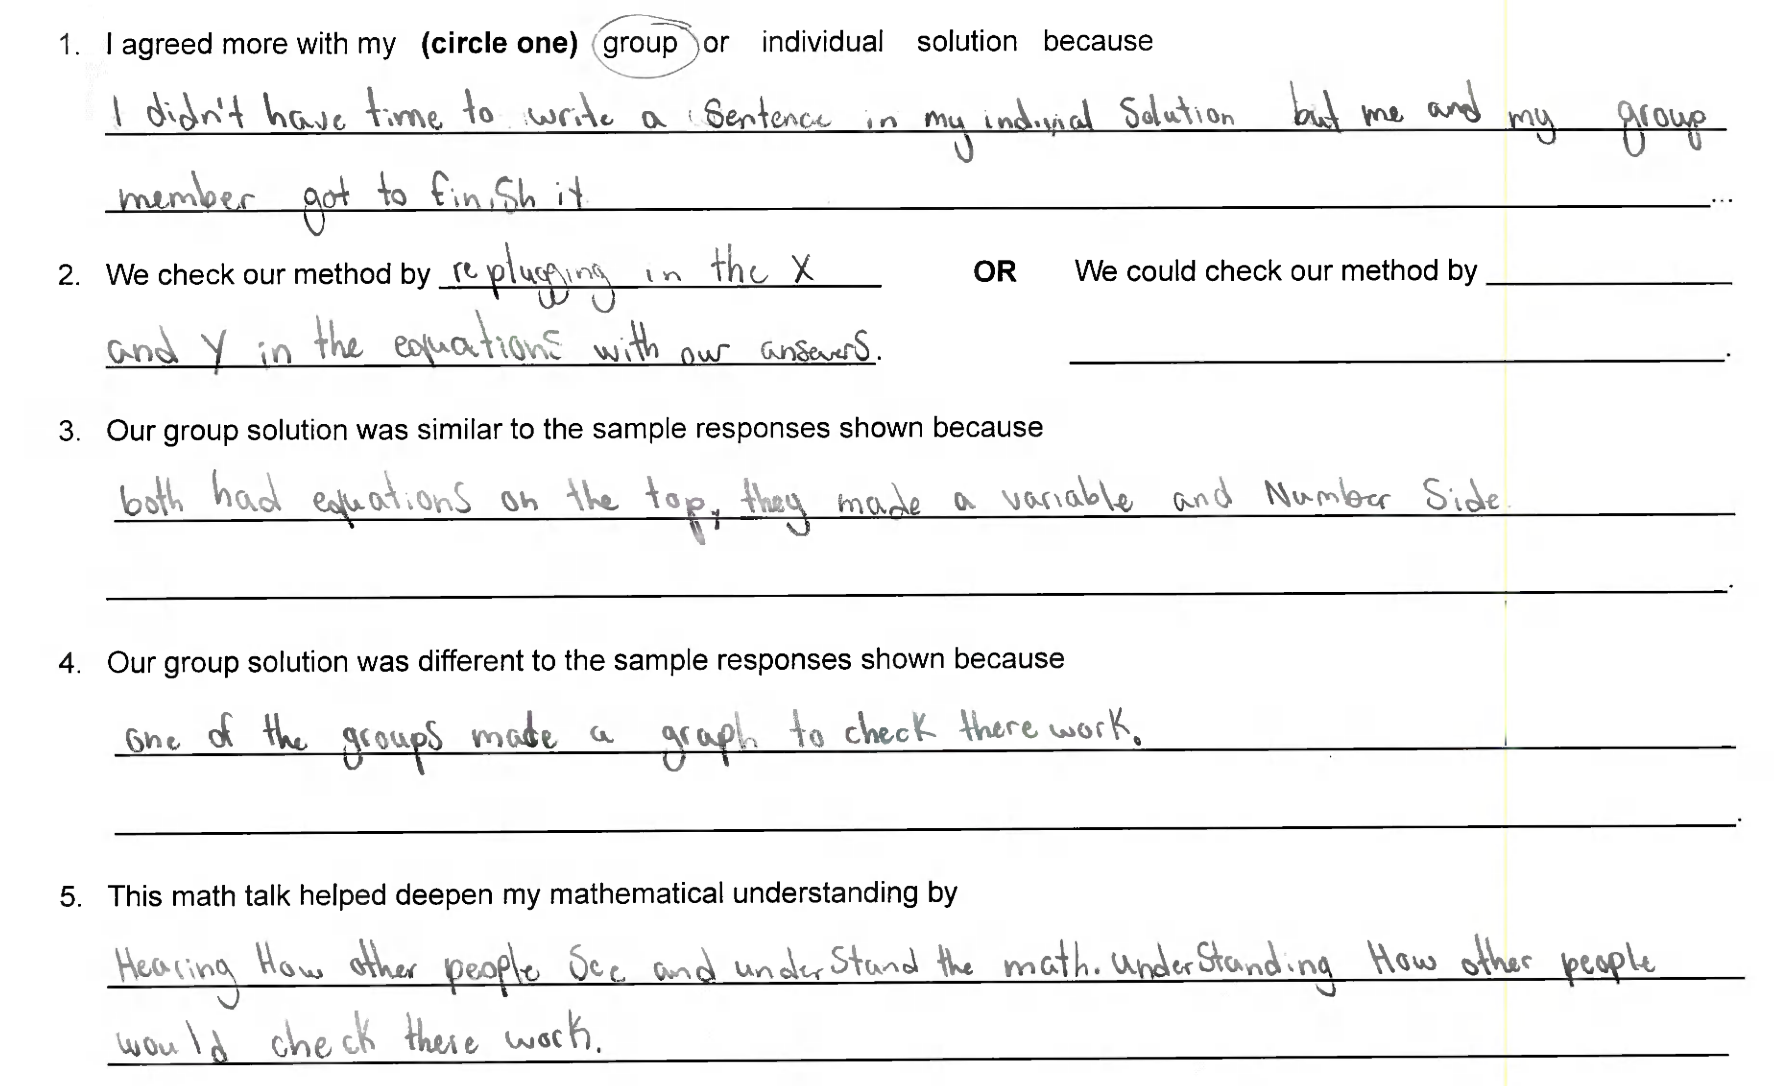 1. I agreed more with my (circle one) group or individual solution because
I didn't have time to write a sentence in my indivial Solution but me and my group
member got to finish it ...
2. We check our method by replugging in the X OR We could check our method by
and Y in the equations with our ansewers.
3. Our group solution was similar to the sample responses shown because
both had equations on the top, they made a variable and Number Side.
4. Our group solution was different to the sample responses shown because
one of the groups made a graph to check there work.
5. This math talk helped deepen my mathematical understanding by
Hearing How other people See and understand the math. Understanding How other people
would check there work.